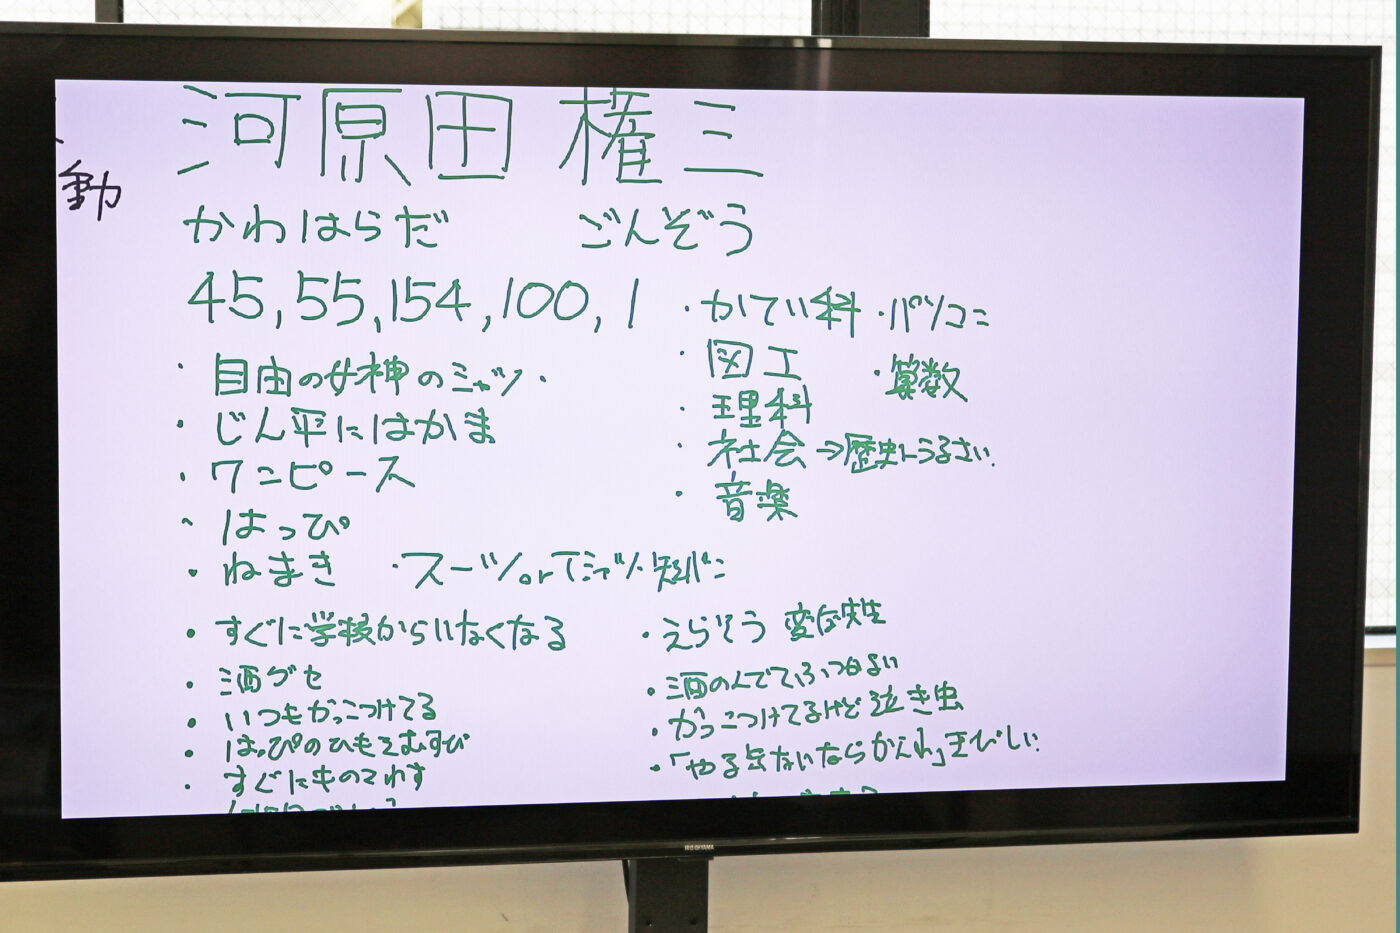 動
河原田 権三
かわはらだ ごんぞう
45,55,154,100,1
・自由の女神のシャツ・
・じん平にはかま
・ワンピース
・はっぴ
・ねまき ・スーツorTシャツ・短パン
・かてい科 ・パソコン
・図工 ・算数
・理科
・社会→歴史にうるさい.
・音楽
・すぐに学校からいなくなる
・酒グセ
・いつもかっこつけてる
・はっぴのひもをむすび
・すぐにものこわす
・えらそう 変な先生
・酒のんでてふつかよい
・かっこつけてるけど泣き虫
・「やる気ないならかえれ」きびしい
IRIS OHYAMA